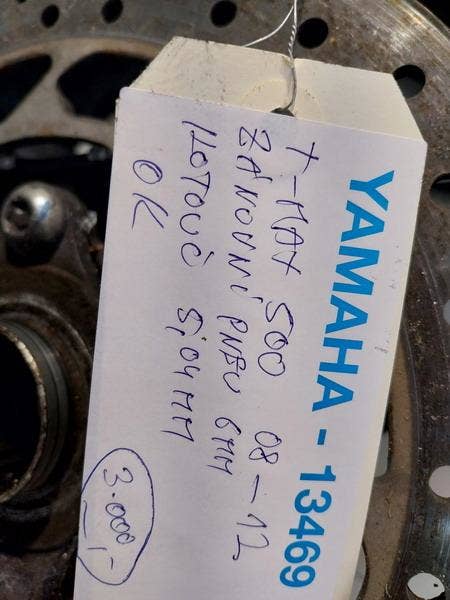 YAMAHA - 13469
T-MAX 500 08-12
ZÁNOVNÍ PNEU 6MM
KOTOUČ 5,04MM
OK
3.000,-